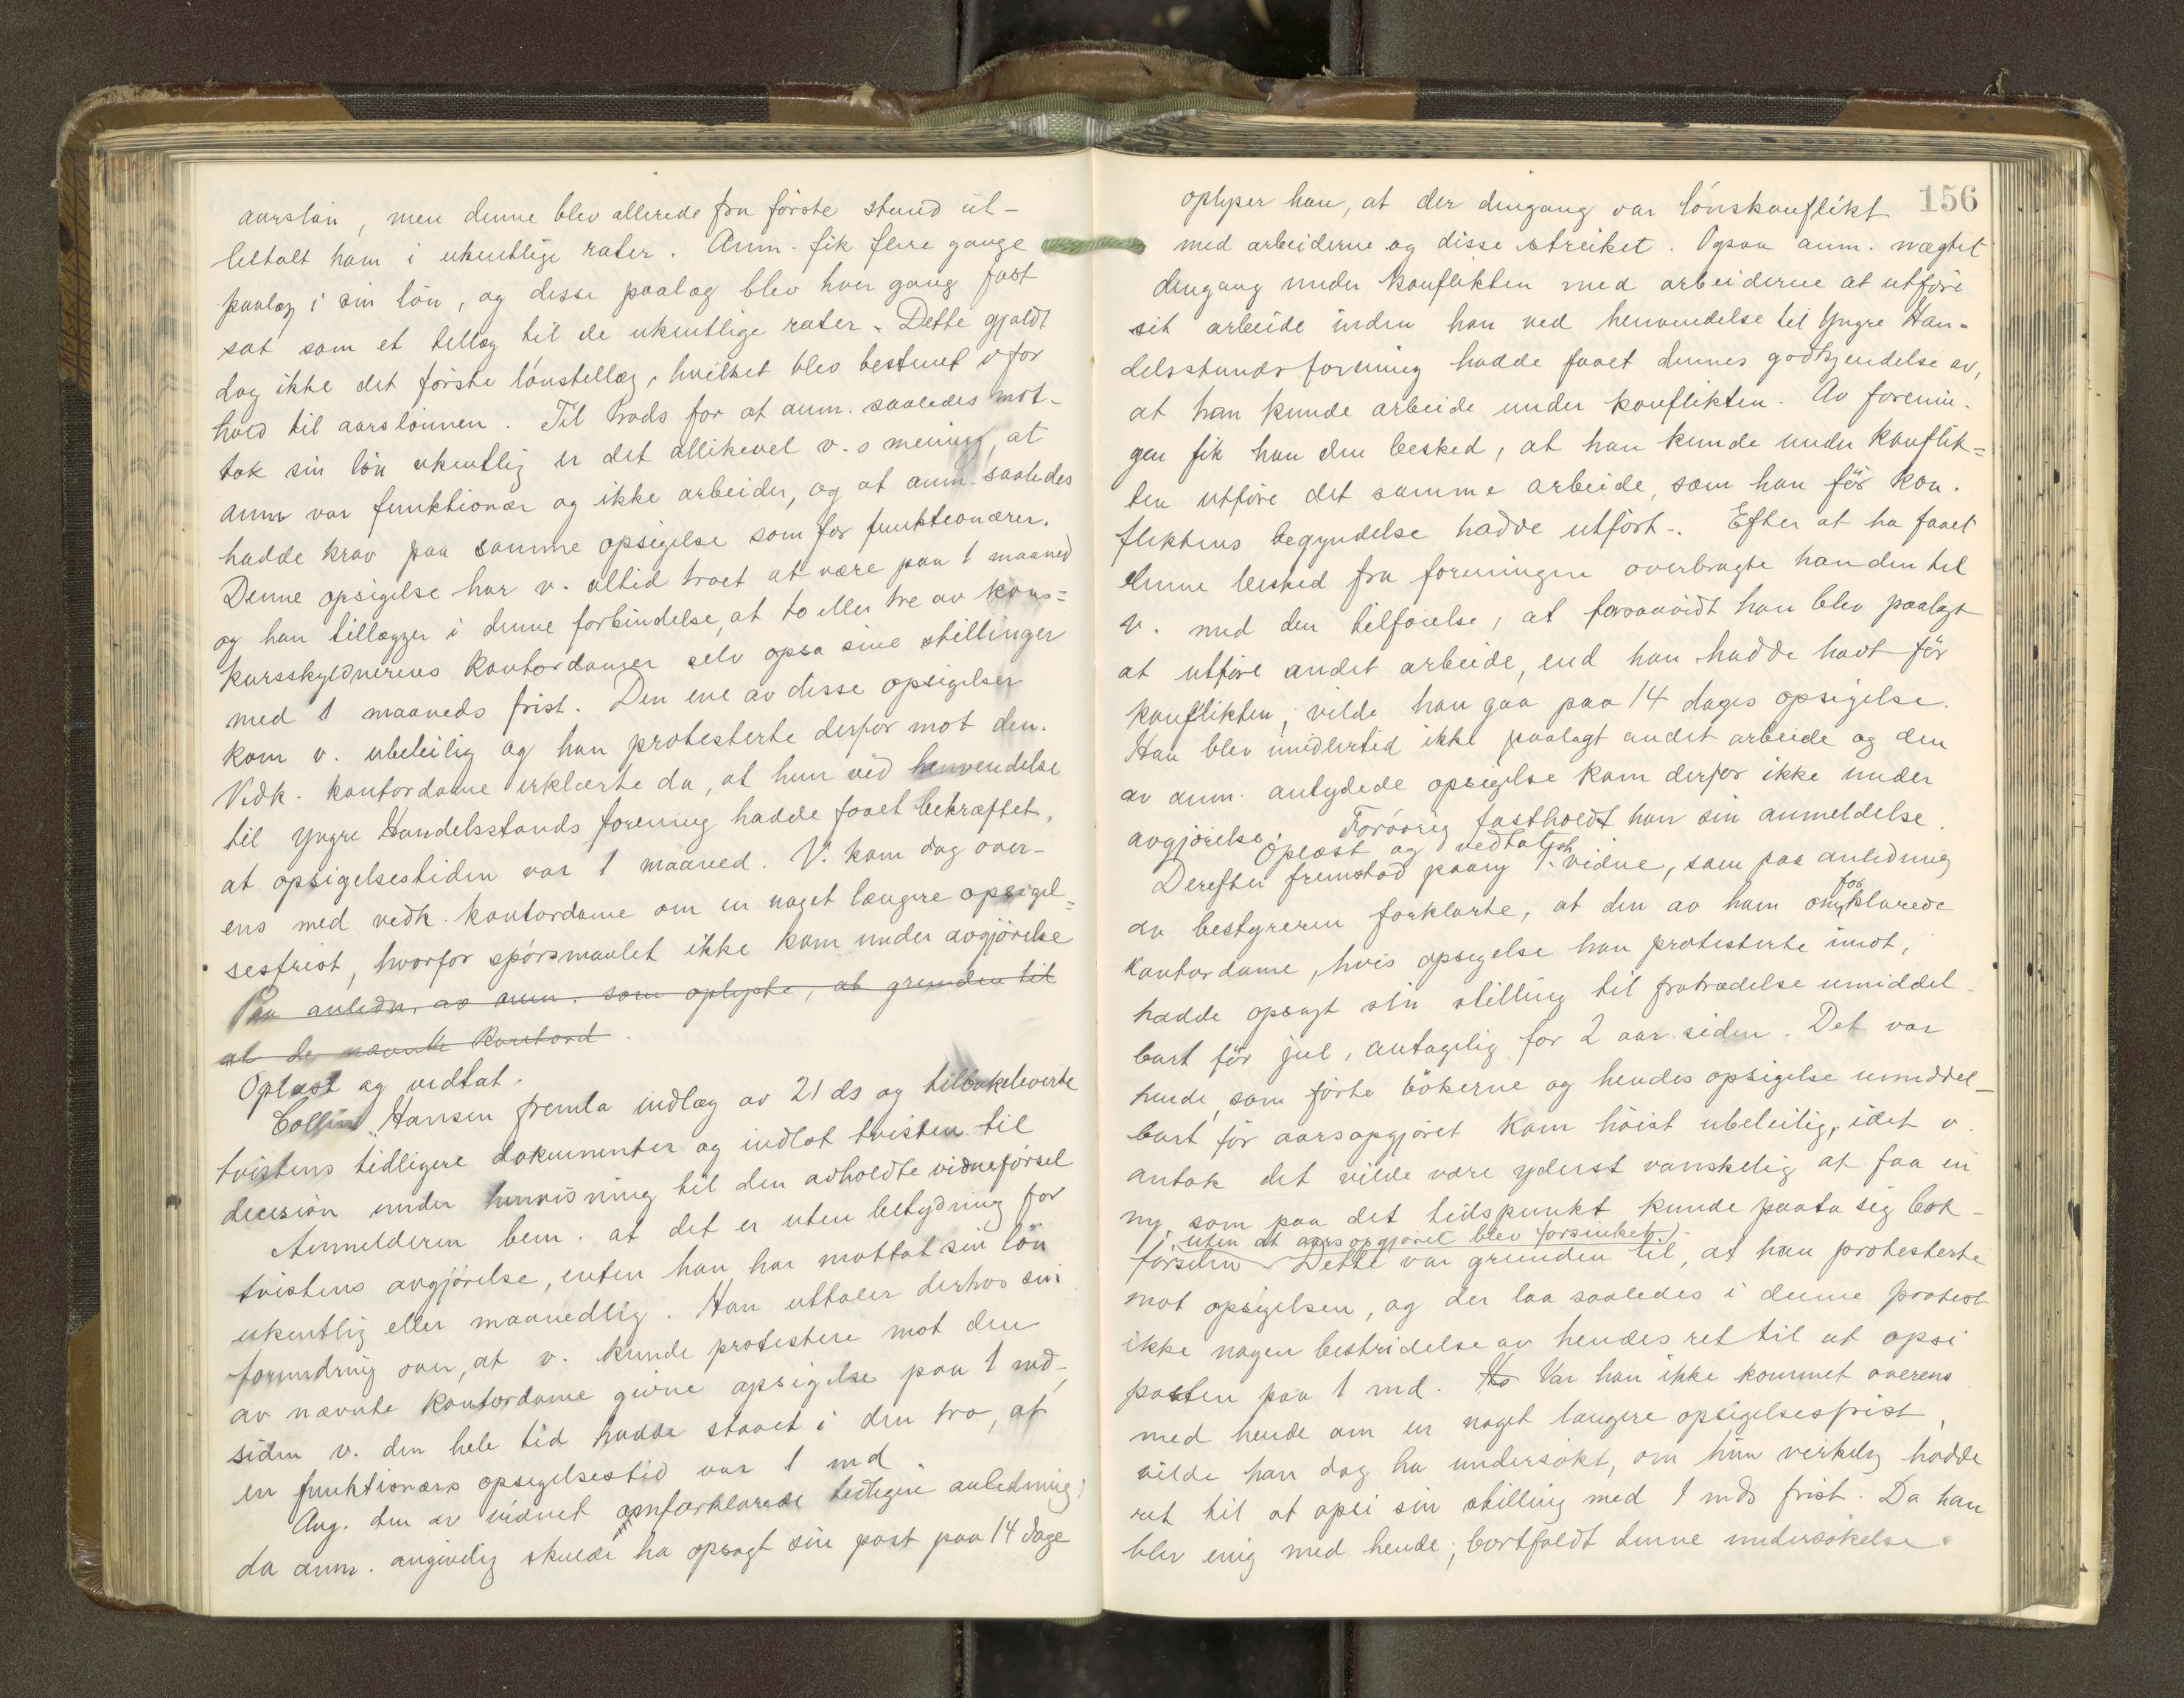 aarslön, men denne blev allerede fra förste stund ut-
betalt ham i ukentlige rater. Anm. fik flere gange
paalæg i sin lön, og disse paalæg blev hver gang fast
sat som et tillæg til de ukentlige rater. Dette gjaldt
dog ikke det förste lönstillæg, hvilket blev bestemt i for
hold til aarslönnen. Til trods for at anm. saaledes mot-
tok sin lön ukentlig er det allikevel v.s mening, at
anm var funktionær og ikke arbeider, og at anm. saaledes
hadde krav paa samme opsigelse som for funktionærer.
Denne opsigelse har v. altid troet at være paa 1 maaned
og han tillægger i denne forbindelse, at to eller tre av kon-
kursskyldnerens kontordamer selv opsa sine stillinger
med 1 maaneds frist. Den ene av disse opsigelser
kom v. ubeleilig og han protesterte derfor mot den.
Vedk. kontordame erklærte da, at hun ved henvendelse
til Yngre Handelsstands forening hadde faaet bekræftet,
at opsigelsestiden var 1 maaned. V. kom dog over-
ens med vedk. kontordame om en noget længere opsigel-
sesfrist, hvorfor spörsmaalet ikke kom under avgjörelse
Paa anledn. av anm. som oplyste, at grunden til
at de nævnte kontord
Oplæst og vedtat.
Collin Hansen fremla indlæg av 21 ds og tilbakeleverte
tvistens tidligere dokumenter og indlot tvisten til
decision under henvisning til den avholdte vidneförsel
Anmelderen bem. at det er uten betydning for
tvistens avgjörelse, enten han har mottat sin lön
ukentlig eller maanedlig. Han uttaler derhos sin
forundring over, at v. kunde protestere mot den
av nævnte kontordame givne opsigelse paa 1 md,
siden v. den hele tid hadde staaet i den tro, at
en funktionærs opsigelsestid var 1 md.
Ang. den av vidnet omforklarede tidligere anledning,
da anm. angivelig skulde ha opsagt sin post paa 14 dage
156
oplyser han, at der dengang var lönskonflikt
med arbeiderne og disse streiket. Ogsaa anm. nægtet
dengang under konflikten med arbeiderne at utföre
sit arbeide inden han ved henvendelse til Yngre Han-
delsstands forening hadde faaet dennes godkjendelse av,
at han kunde arbeide under konflikten. Av forenin-
gen fik han den besked, at han kunde under konflik-
ten utföre det samme arbeide, som han för kon-
fliktens begyndelse hadde utfört. Efter at ha faaet
denne besked fra foreningen overbragte han den til
v. med den tilföielse, at forsaavidt han blev paalagt
at utföre andet arbeide, end han hadde havt för
konflikten, vilde han gaa paa 14 dages opsigelse.
Han blev imidlertid ikke paalagt andet arbeide og den
av anm. antydede opsigelse kom derfor ikke under
avgjörelse. Forövrig fastholdt han sin anmeldelse.
Oplæst og vedtat
Derefter fremstod paany 1. vidne, som paa anledning
av bestyreren forklarte, at den av ham omforklarede
kontordame, hvis opsigelse han protesterte imot,
hadde opsagt sin stilling til fratrædelse umiddel-
bart för jul, antagelig for 2 aar siden. Det var
hende, som förte bökerne og hendes opsigelse umiddel-
bart för aarsopgjöret kom höist ubeleilig, idet v.
antok det vilde være yderst vanskelig at faa en
ny, som paa det tidspunkt kunde paata sig bok-
förselen, uten at aarsopgjöret blev forsinket. Dette var grunden til, at han protesterte
mot opsigelsen, og der laa saaledes i denne protest
ikke nogen bestridelse av hendes ret til at opsi
posten paa 1 md. Var han ikke kommet overens
med hende om en noget længere opsigelsesfrist,
vilde han dog ha undersökt, om hun virkelig hadde
ret til at opsi sin stilling med 1 mds frist. Da han
blev enig med hende, bortfaldt denne undersökelse.